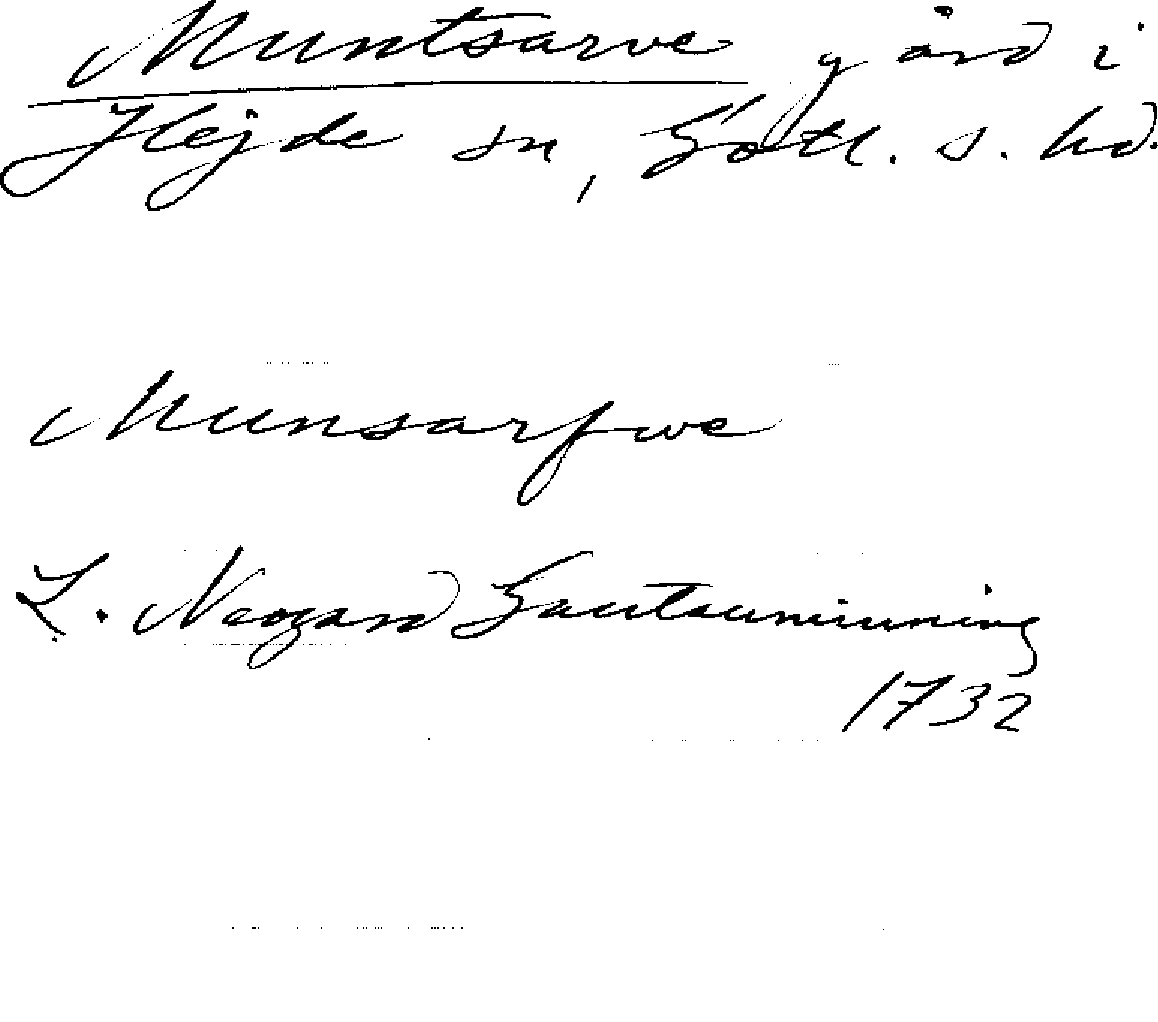 Muntsarve gård i
Hejde sn, Gotl. s. hd.
Munsarfwe
L. Neogard Gautauminning
1732